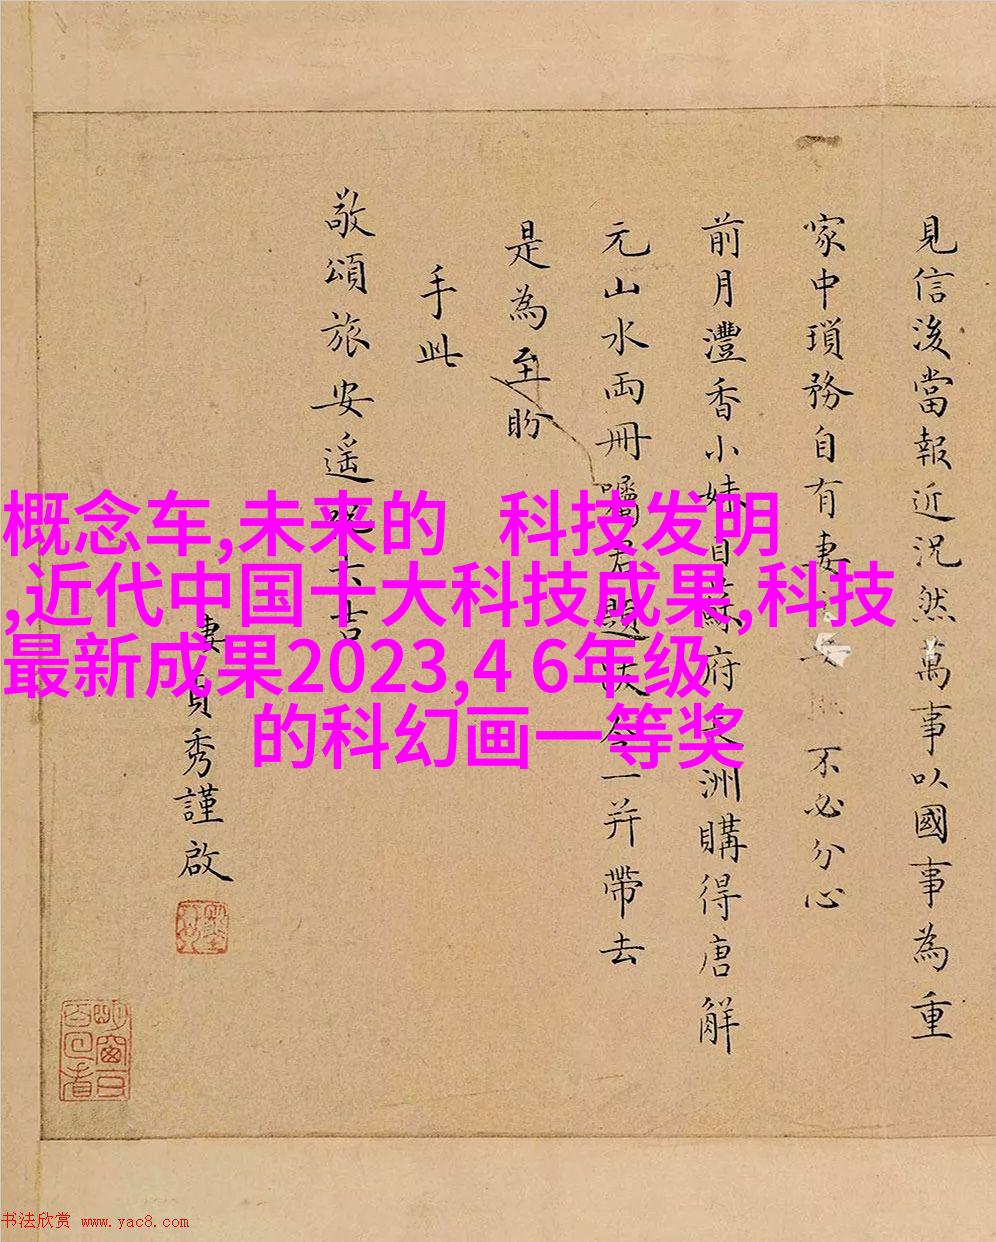 見信後當報近況然萬事以國事為重
家中瑣務自有妻 不必分心
前月灃香小妹 府 洲購得唐解
元山水兩冊囑君題 一并帶去
是為至盼
手此
敬頌旅安遥 吉
妻貞秀謹啟
概念车,未来的 科技发明
,近代中国十大科技成果,科技
最新成果2023,4 6年级
的科幻画一等奖
书法欣赏 www.yac8.com